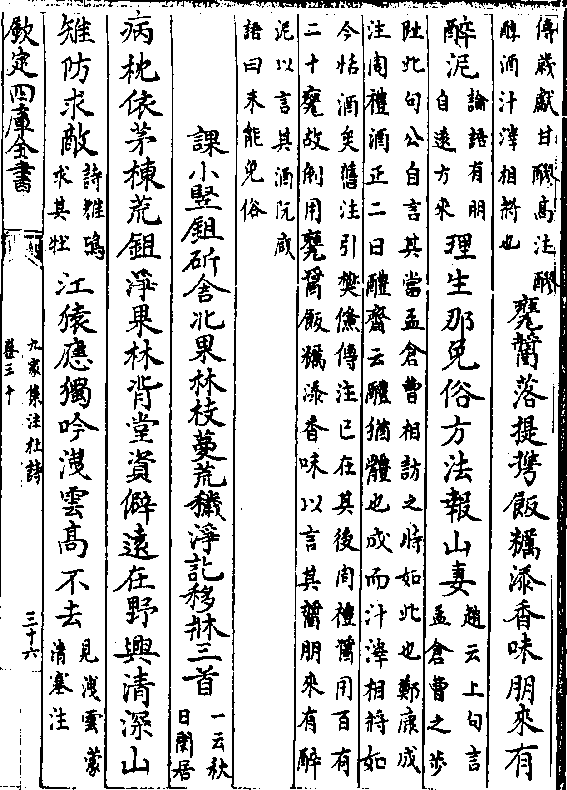 傳歲獻甘醪高注醪
醇酒汁滓相將也
甕醬落提攜飯糲添香味朋來有
醉泥
論語有朋
自遠方來
理生那免俗方法報山妻
趙云上句言
孟倉曹之步
趾此句公自言其當孟倉曹相訪之時如此也鄭康成
注周禮酒正二曰醴齊云醴猶體也成而汁滓相將如
今恬酒矣舊注引樊儵傳注已在其後周禮醬用百有
二十甕故削用甕醬飯糲添香味以言其醬朋來有醉
泥以言其酒阮咸
語曰未能免俗
課小豎鉏斫舍北果林枝蔓荒穢淨訖移牀三首
一云秋
日閒居
病枕依茅棟荒鉏淨果林背堂資僻遠在野興清深山
雉防求敵
詩雉鳴
求其牡
江猿應獨吟洩雲高不去
見洩雲蒙
清塞注
欽定四庫全書
九家集注杜詩
卷三十
三十六